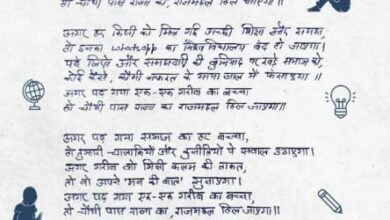 तो चौथी पास राजा का, राजमहल हिल जाएगा॥
अगर हर किसी को मिल गई अच्छी शिक्षा और समझ,
तो इनका whatsapp का विश्व विद्यालय बंद हो जाएगा।
पढ़े लिखे और समझदारी की बुनियाद पर खड़े समाज को,
कोई कैसे, धर्म नफरत के माया जाल में फंसाएगा॥
अगर पढ़ गया एक-एक गरीब का बच्चा
तो चौथी पास राजा का राजमहल हिल जाएगा॥
अगर पढ़ गया समाज का हर बच्चा,
तो तुम्हारी चालाकियों और कुनीतियों पे सवाल उठाएगा।
अगर गरीब को मिली कलम की ताकत,
तो वो अपने 'मन की बात' सुनाएगा।
अगर पढ़ गया एक-एक गरीब का बच्चा,
तो चौथी पास राजा का, राजमहल हिल जाएगा॥